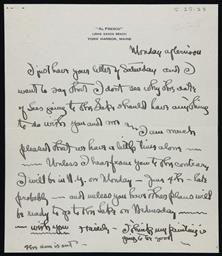 5-23-23
"AL FRESCO"
LONG SANDS BEACH
YORK HARBOR, MAINE
Monday afternoon
I just have your letter of Saturday and I
want to say that I don't see why the date
of Jess going to the Lake should have anything
to do with you and me — I am much
pleased that we have a little time alone —
Unless I hear from you to the contrary
I will be in N.Y. on Monday — June 4th - late
probably — and unless you have other plans will
be ready to go to the Lake on Wednesday —
with you
I think my painting is
going to be good